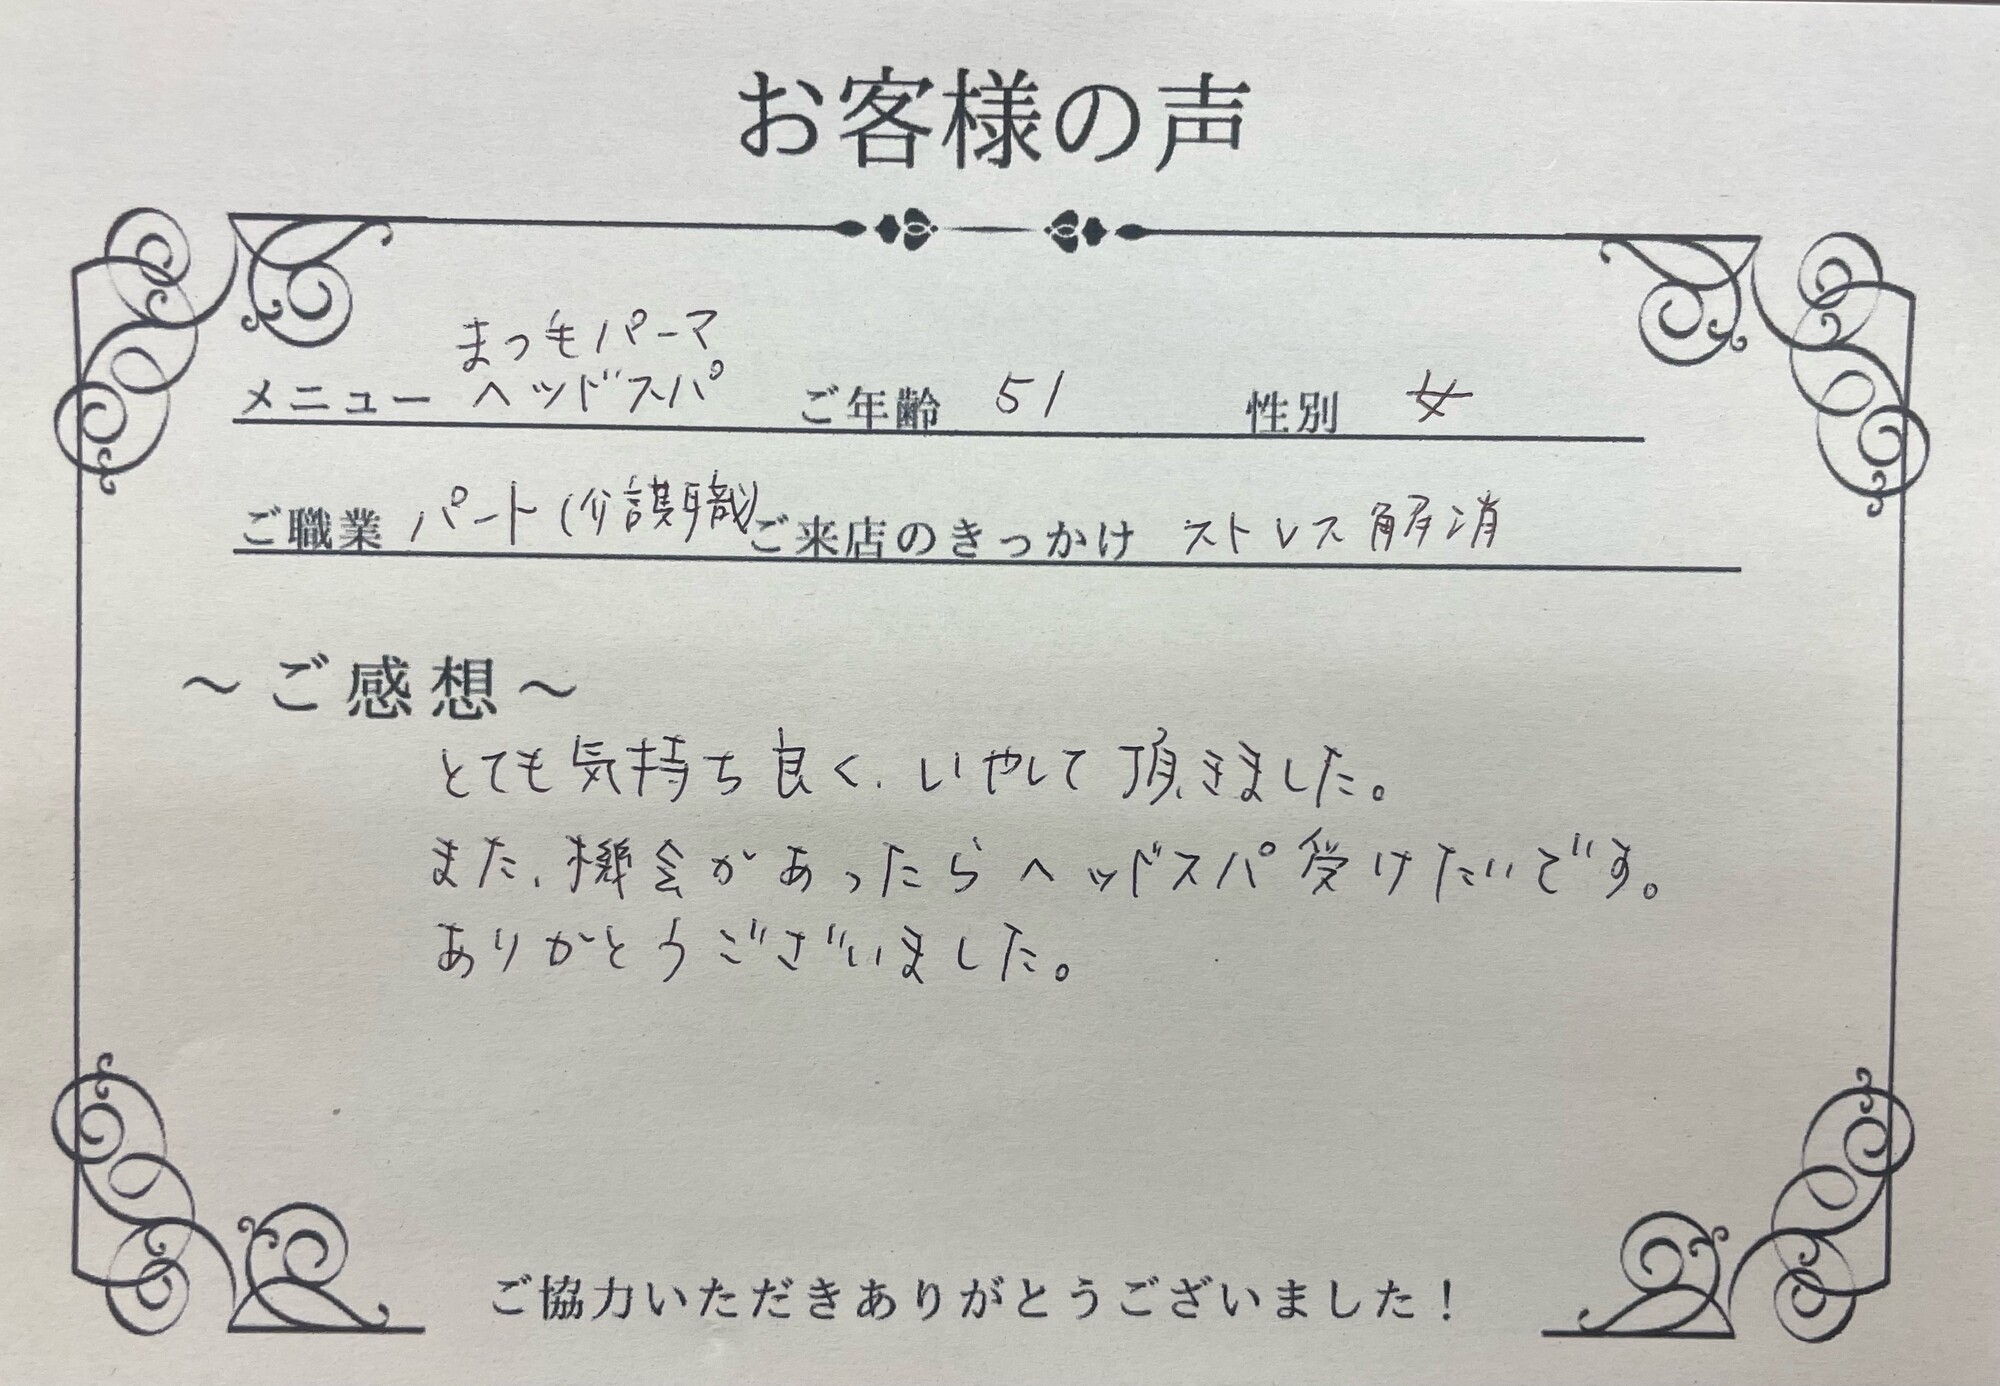 お客様の声
まつ毛パーマ
メニュー ヘッドスパ ご年齢 51 性別 女
ご職業 パート(介護職) ご来店のきっかけ ストレス解消
～ご感想～
とても気持ち良く、いやして頂きました。
また、機会があったらヘッドスパ受けたいです。
ありがとうございました。
ご協力いただきありがとうございました！